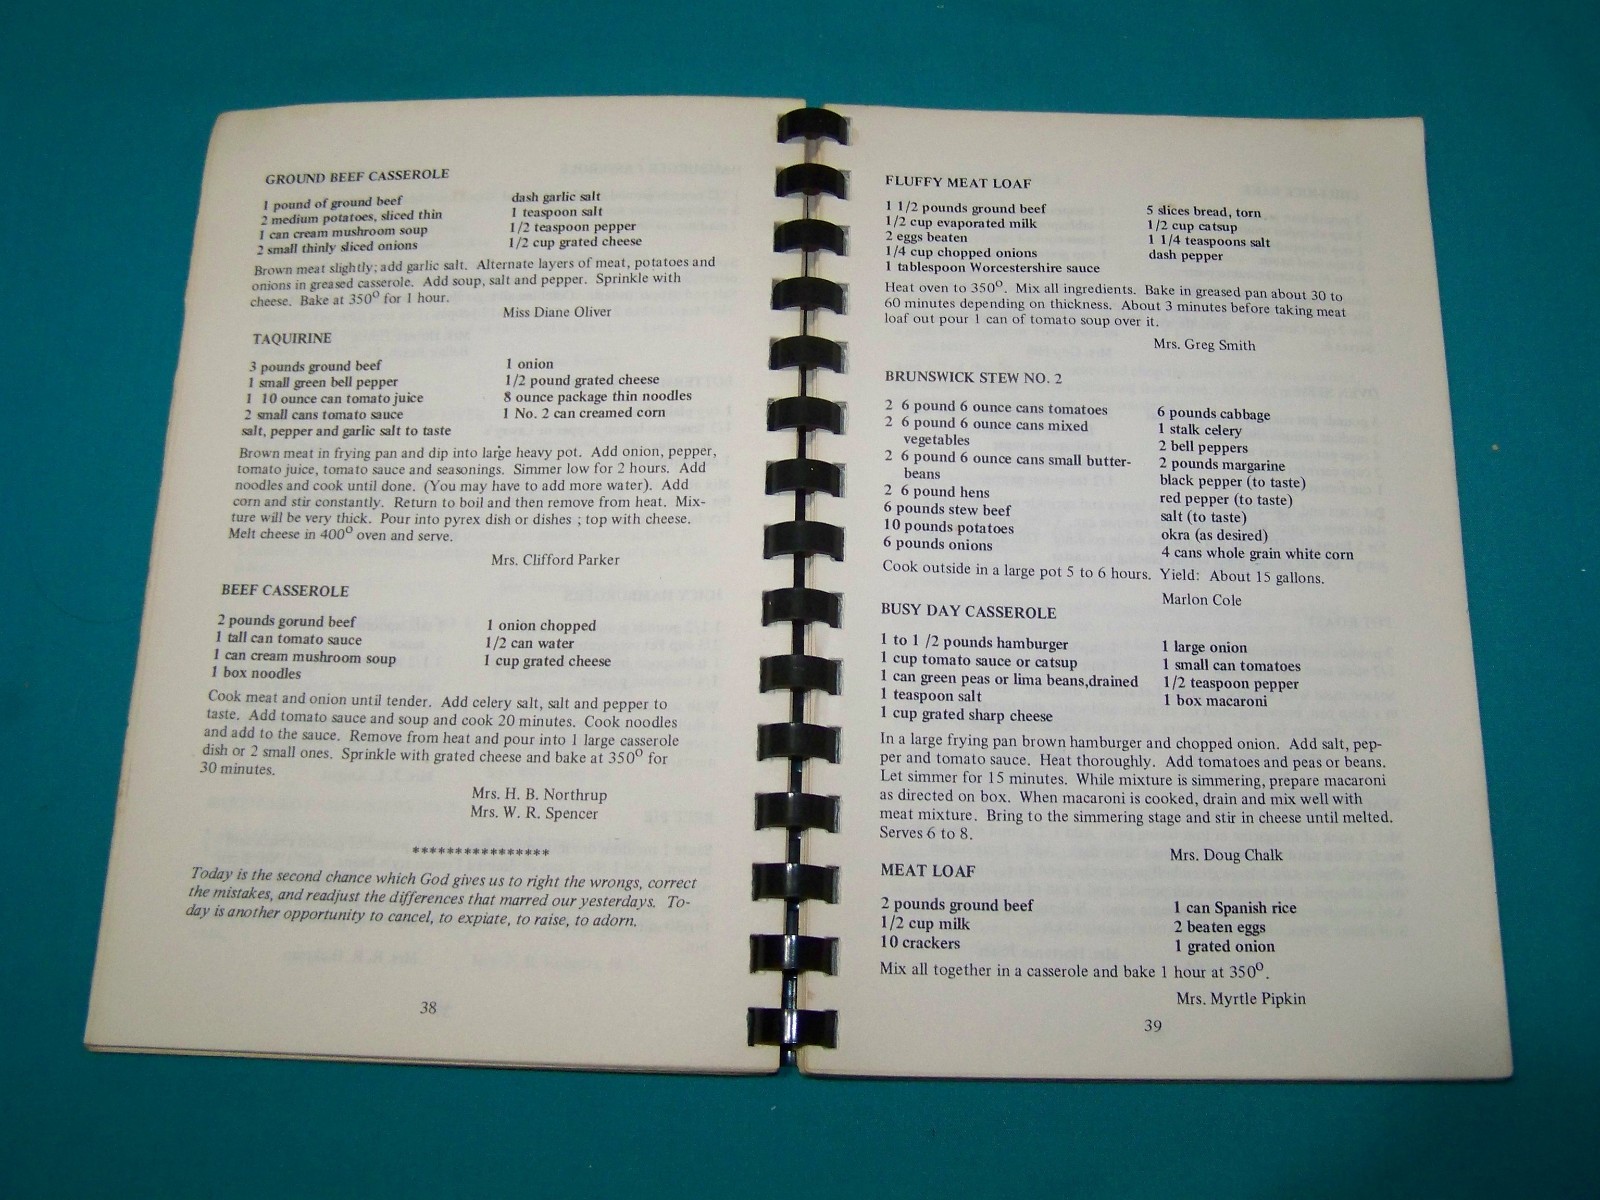 GROUND BEEF CASSEROLE
1 pound of ground beef
2 medium potatoes, sliced thin
1 can cream mushroom soup
2 small thinly sliced onions
dash garlic salt
1 teaspoon salt
1/2 teaspoon pepper
1/2 cup grated cheese
Brown meat slightly; add garlic salt. Alternate layers of meat, potatoes and
onions in greased casserole. Add soup, salt and pepper. Sprinkle with
cheese. Bake at 350° for 1 hour.
Miss Diane Oliver
TAQUIRINE
3 pounds ground beef
1 small green bell pepper
1 10 ounce can tomato juice
2 small cans tomato sauce
salt, pepper and garlic salt to taste
1 onion
1/2 pound grated cheese
8 ounce package thin noodles
1 No. 2 can creamed corn
Brown meat in frying pan and dip into large heavy pot. Add onion, pepper,
tomato juice, tomato sauce and seasonings. Simmer low for 2 hours. Add
noodles and cook until done. (You may have to add more water). Add
corn and stir constantly. Return to boil and then remove from heat. Mix-
ture will be very thick. Pour into pyrex dish or dishes ; top with cheese.
Melt cheese in 400° oven and serve.
Mrs. Clifford Parker
BEEF CASSEROLE
2 pounds gorund beef
1 tall can tomato sauce
1 can cream mushroom soup
1 box noodles
1 onion chopped
1/2 can water
1 cup grated cheese
Cook meat and onion until tender. Add celery salt, salt and pepper to
taste. Add tomato sauce and soup and cook 20 minutes. Cook noodles
and add to the sauce. Remove from heat and pour into 1 large casserole
dish or 2 small ones. Sprinkle with grated cheese and bake at 350° for
30 minutes.
Mrs. H. B. Northrup
Mrs. W. R. Spencer
****************
Today is the second chance which God gives us to right the wrongs, correct
the mistakes, and readjust the differences that marred our yesterdays. To-
day is another opportunity to cancel, to expiate, to raise, to adorn.
38
FLUFFY MEAT LOAF
1 1/2 pounds ground beef
1/2 cup evaporated milk
2 eggs beaten
1/4 cup chopped onions
1 tablespoon Worcestershire sauce
5 slices bread, torn
1/2 cup catsup
1 1/4 teaspoons salt
dash pepper
Heat oven to 350°. Mix all ingredients. Bake in greased pan about 30 to
60 minutes depending on thickness. About 3 minutes before taking meat
loaf out pour 1 can of tomato soup over it.
Mrs. Greg Smith
BRUNSWICK STEW NO. 2
2 6 pound 6 ounce cans tomatoes
2 6 pound 6 ounce cans mixed
vegetables
2 6 pound 6 ounce cans small butter-
beans
2 6 pound hens
6 pounds stew beef
10 pounds potatoes
6 pounds onions
6 pounds cabbage
1 stalk celery
2 bell peppers
2 pounds margarine
black pepper (to taste)
red pepper (to taste)
salt (to taste)
okra (as desired)
4 cans whole grain white corn
Cook outside in a large pot 5 to 6 hours. Yield: About 15 gallons.
Marlon Cole
BUSY DAY CASSEROLE
1 to 1 /2 pounds hamburger
1 cup tomato sauce or catsup
1 can green peas or lima beans,drained
1 teaspoon salt
1 cup grated sharp cheese
1 large onion
1 small can tomatoes
1/2 teaspoon pepper
1 box macaroni
In a large frying pan brown hamburger and chopped onion. Add salt, pep-
per and tomato sauce. Heat thoroughly. Add tomatoes and peas or beans.
Let simmer for 15 minutes. While mixture is simmering, prepare macaroni
as directed on box. When macaroni is cooked, drain and mix well with
meat mixture. Bring to the simmering stage and stir in cheese until melted.
Serves 6 to 8.
Mrs. Doug Chalk
MEAT LOAF
2 pounds ground beef
1/2 cup milk
10 crackers
1 can Spanish rice
2 beaten eggs
1 grated onion
Mix all together in a casserole and bake 1 hour at 350°.
Mrs. Myrtle Pipkin
39